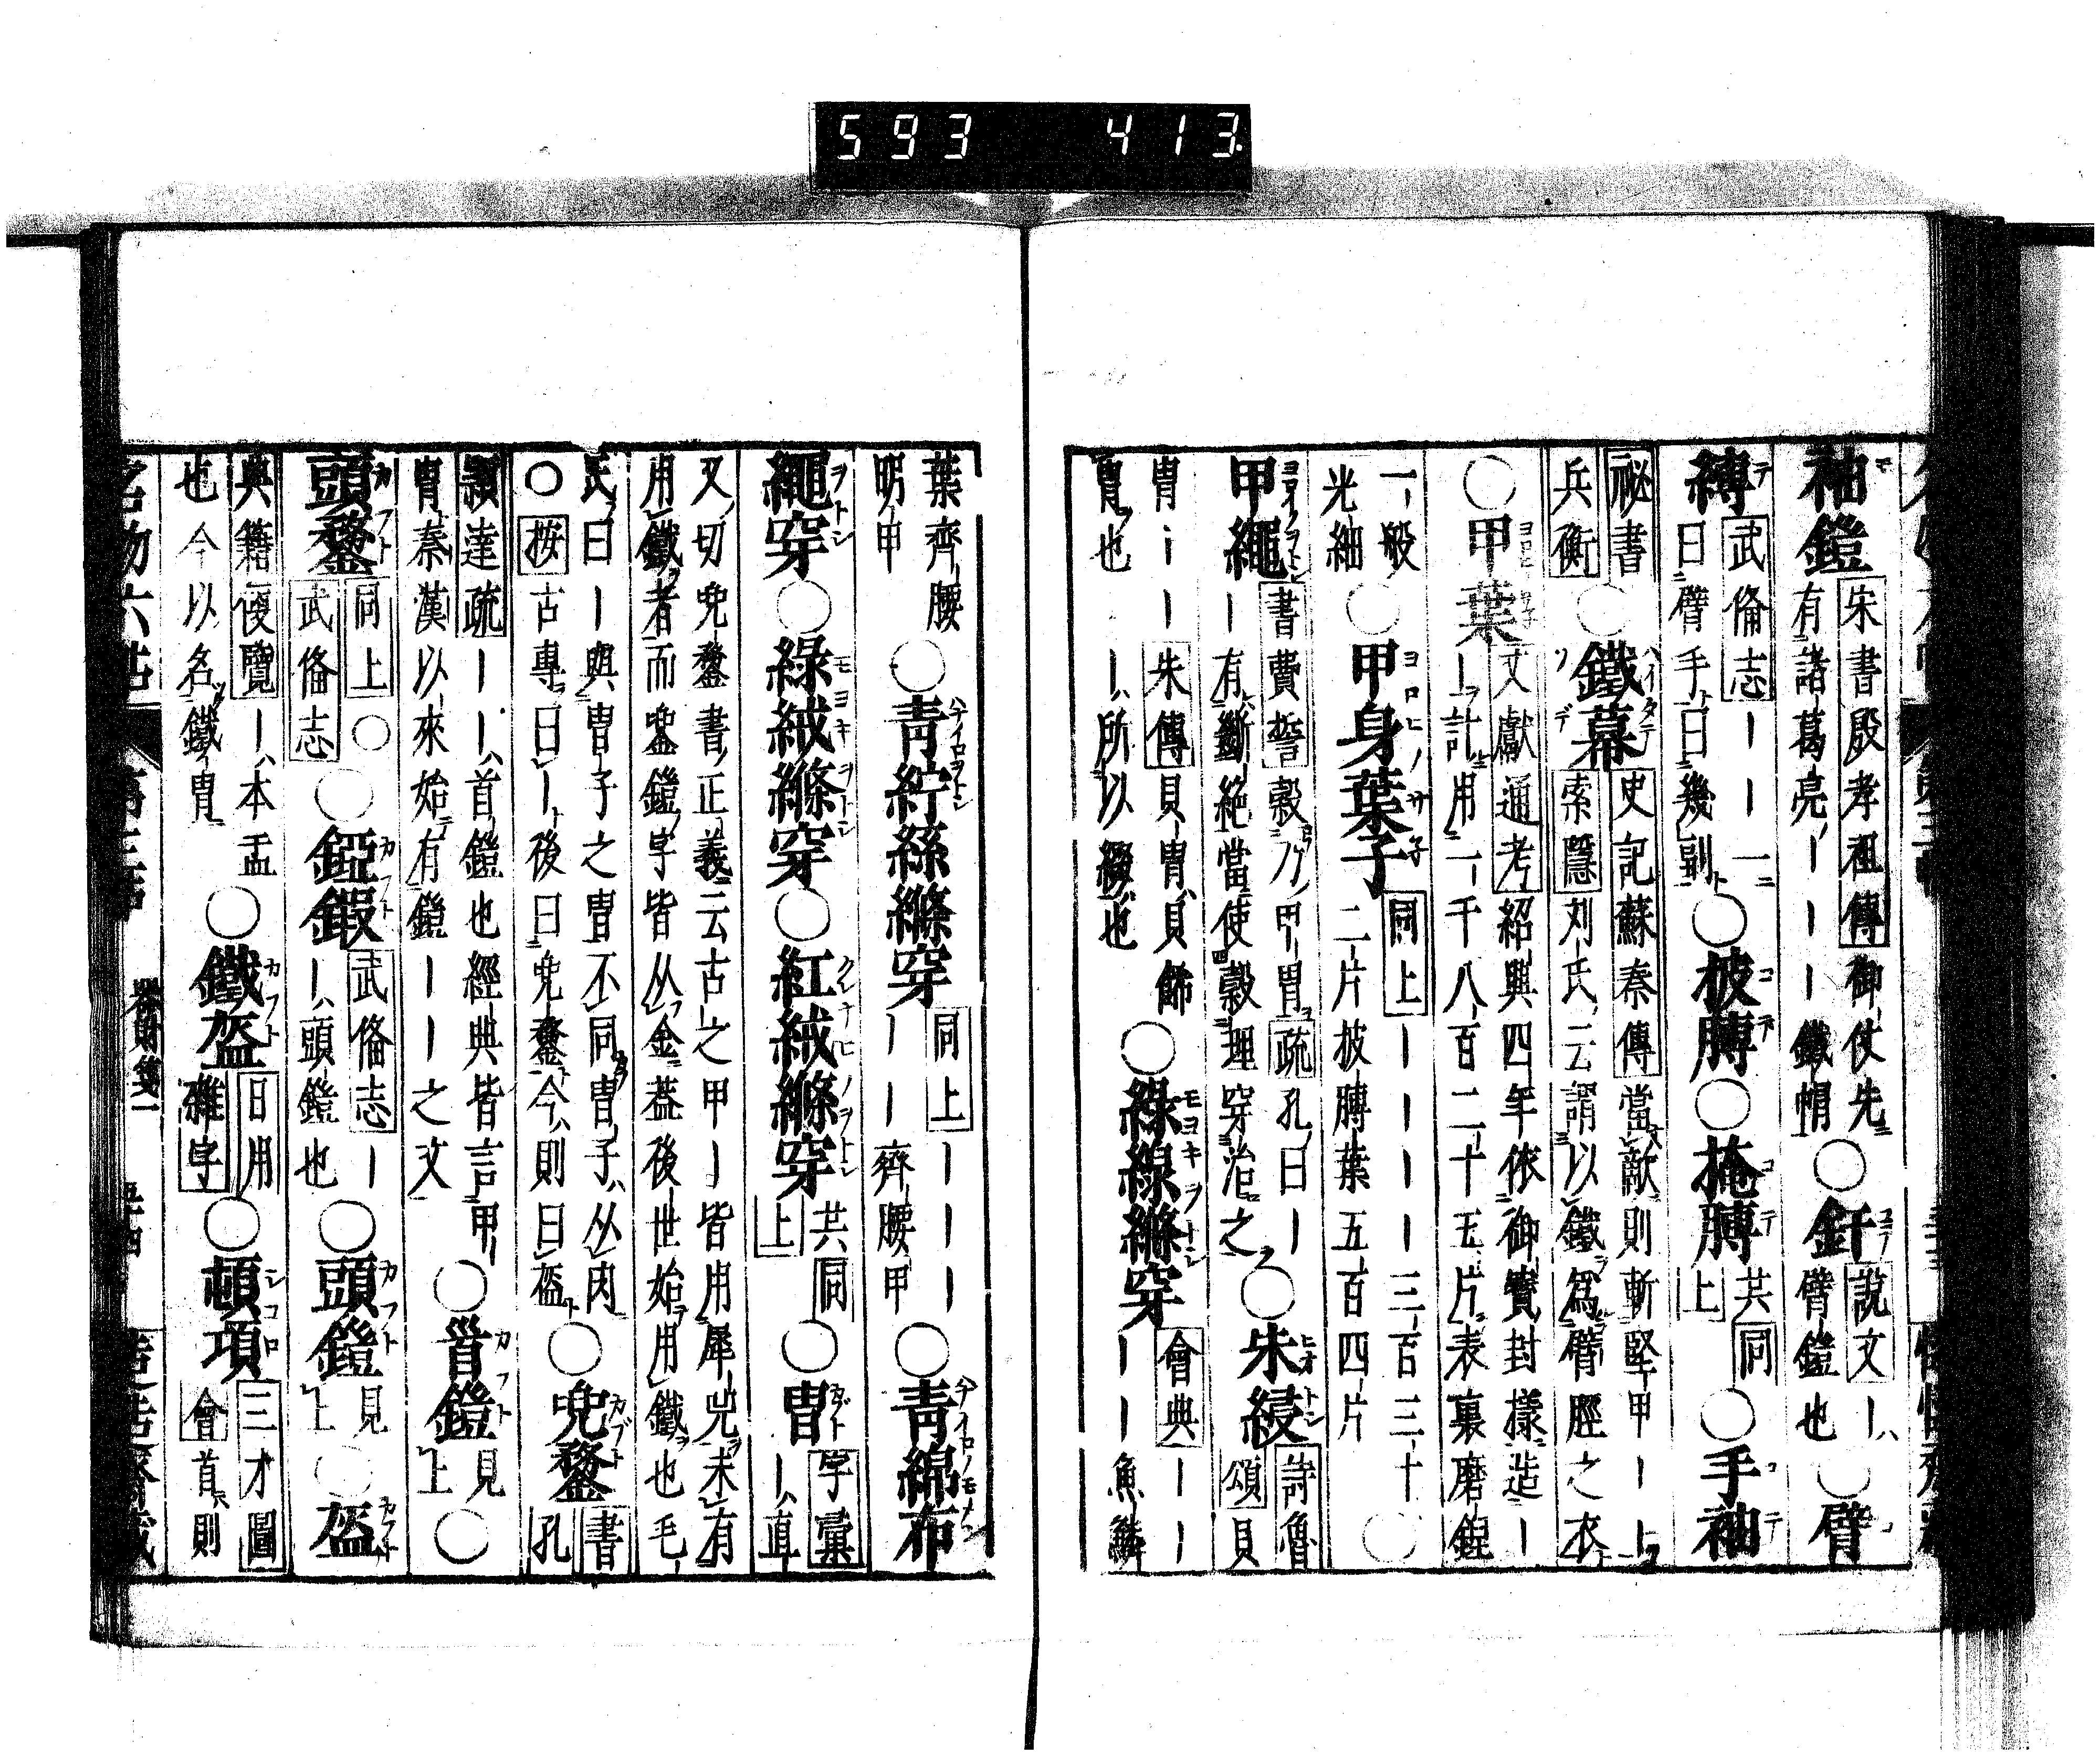 袖鎧 宋書殷孝祖傳御仗先
有諸葛亮｜｜｜鐵帽 ○釬 説文｜ハ
臂鎧也 ○臂
縛 武俻志｜｜｜一
曰臂手曰幾副 ○披膊○掩膊 共同
上 ○手袖
祕書
兵衡 ○鐵幕 史記蘇秦傳當敵則斬堅甲｜｜
索隱刘氏云謂以鐵爲臂脛之衣
○甲葉 文獻通考紹興四年依御寳封樣造｜
｜計用一千八百二十五片表裏磨鋥
一般
光細 ○甲身葉子 同上｜｜｜｜三百三十
二片披膊葉五百四片 ○
甲繩 書費誓穀乃甲冑疏孔曰｜
｜有斷絶當使穀理穿治之 ○朱綅 詩魯
頌貝
冑｜｜朱傳貝冑貝飾
冑也｜所以綴也 ○綠線縧穿 會典｜｜
｜｜魚鱗
葉齊腰
明甲 ○青紵絲縧穿 同上｜｜｜
｜｜齊腰甲 ○青綿布
繩穿○綠絨縧穿○紅絨縧穿 共同
上 ○冑 字彙
｜直
又切兜鍪書正義云古之甲｜皆用犀兕未有
用鐵者而鍪鎧字皆从金葢後世始用鐵也毛
氏曰｜與冑子之冑不同冑子从肉
○按古專曰｜後曰兜鍪今則曰盔 ○兜鍪 書
孔
頴達疏｜｜首鎧也經典皆言甲
冑秦漢以來始有鎧｜｜之文 ○首鎧 見
上 ○
頭鍪 同上○
武俻志 ○錏鍜 武俻志｜
｜頭鎧也 ○頭鎧 見
上 ○盔
典籍便覽｜本盂
也今以名鐵冑 ○鐵盔 日用
雜字 ○頓項 三才圖
會首則
名物六帖 第三帖 器財箋一
593 413